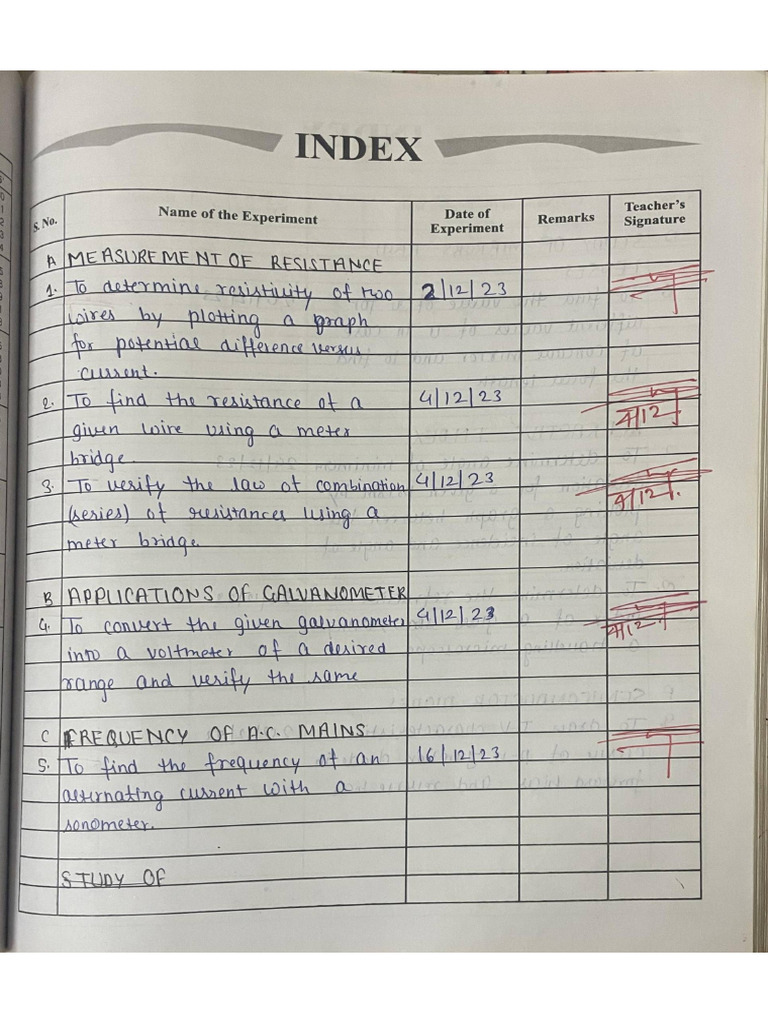 INDEX
S. No. Name of the Experiment Date of Experiment Remarks Teacher's Signature
A MEASUREMENT OF RESISTANCE
1. To determine resistivity of two 2/12/23
wires by plotting a graph
for potential difference versus
current.
2. To find the resistance of a 4/12/23
given wire using a meter 4/12
bridge.
3. To verify the law of combination 4/12/23
(series) of resistances using a 4/12
meter bridge.
B APPLICATIONS OF GALVANOMETER
4. To convert the given galvanometer 4/12/23
into a voltmeter of a desired 4/12
range and verify the same
C FREQUENCY OF A.C. MAINS
5. To find the frequency of an 16/12/23
alternating current with a
sonometer.
STUDY OF